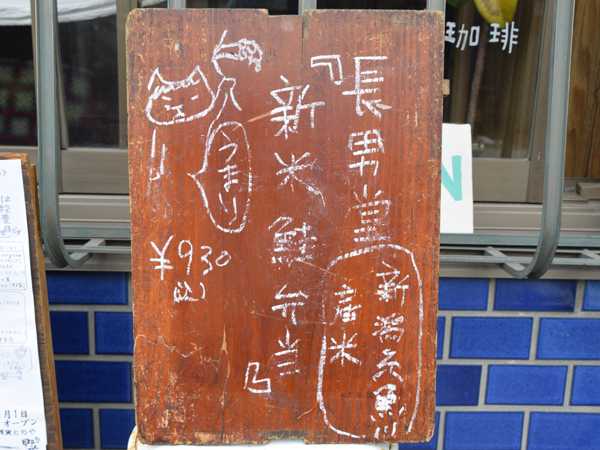 珈琲
『長男堂
新潟
産米
新米鮭弁当』
うまり
¥930
(込)
N
月1日
オープン